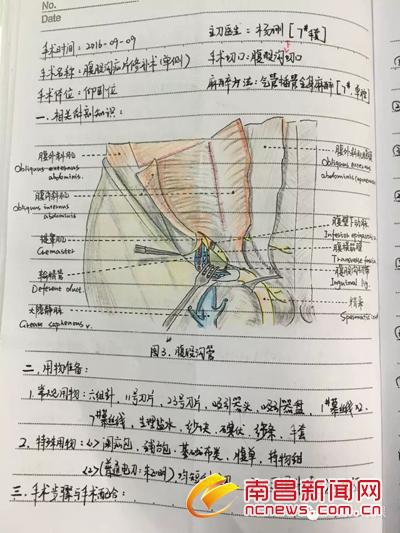 No.
Date
手术时间：2016-09-09
主刀医生：杨刚［7#手套］
手术名称：腹股沟疝片修补术（单侧）
手术切口：腹股沟切口
手术体位：仰卧位
麻醉方法：气管插管全身麻醉
一．相关解剖知识：
腹外斜肌
Obliquus externus
abdominis.
腹内斜肌
Obliquus internus
abdominis
提睾肌
Cremaster
输精管
Deferent duct.
大隐静脉
Great saphenous v.
Obliquus externus
abdominis
腹壁下动脉
腹横筋膜
Transverse fascia
Inguinal lig.
精索
Spermatic cord
图3．腹股沟管
二．用物准备：
1．常规用物：六组针，11号刀片，23号刀片，吸引器头，吸引器盘，1#慕丝线x2
7#慕丝线，生理盐水，纱块，碘伏，手套
2．特殊用物：<1>疝包，基础布类，腹单，持物钳
<2>普通电刀：
三．手术步骤与手术配合：
南昌新闻网
ncnews.com.cn